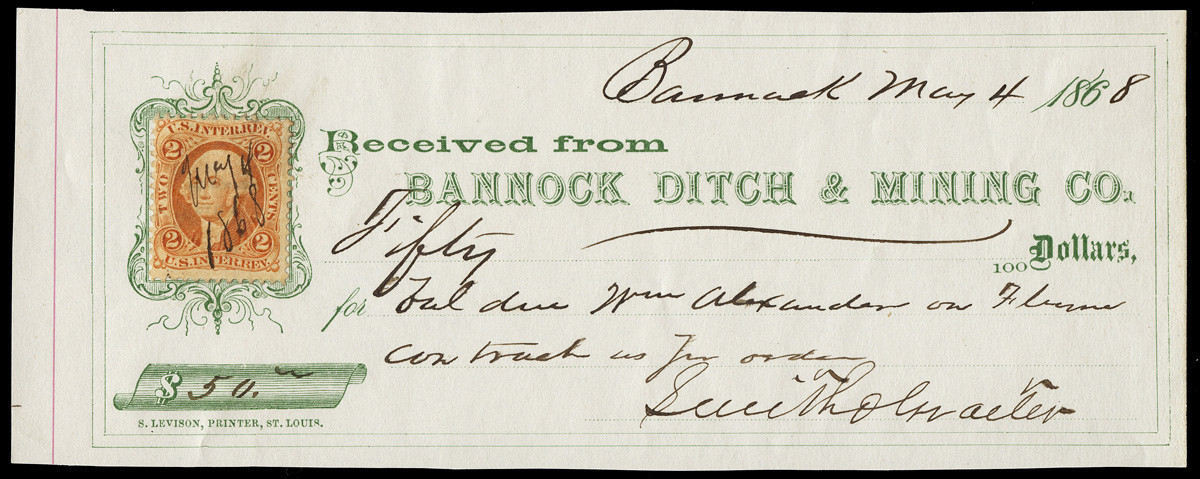 Bannack May 4 1868
U.S. INTER. REV.
2 2
TWO CENTS
May 4
1868
2 2
U.S. INTER. REV.
Received from
BANNOCK DITCH & MINING CO.
Fifty
100 Dollars,
for Bal due Wm Alexander on Flume
contract as per order
$ 50.00
S. LEVISON, PRINTER, ST. LOUIS.